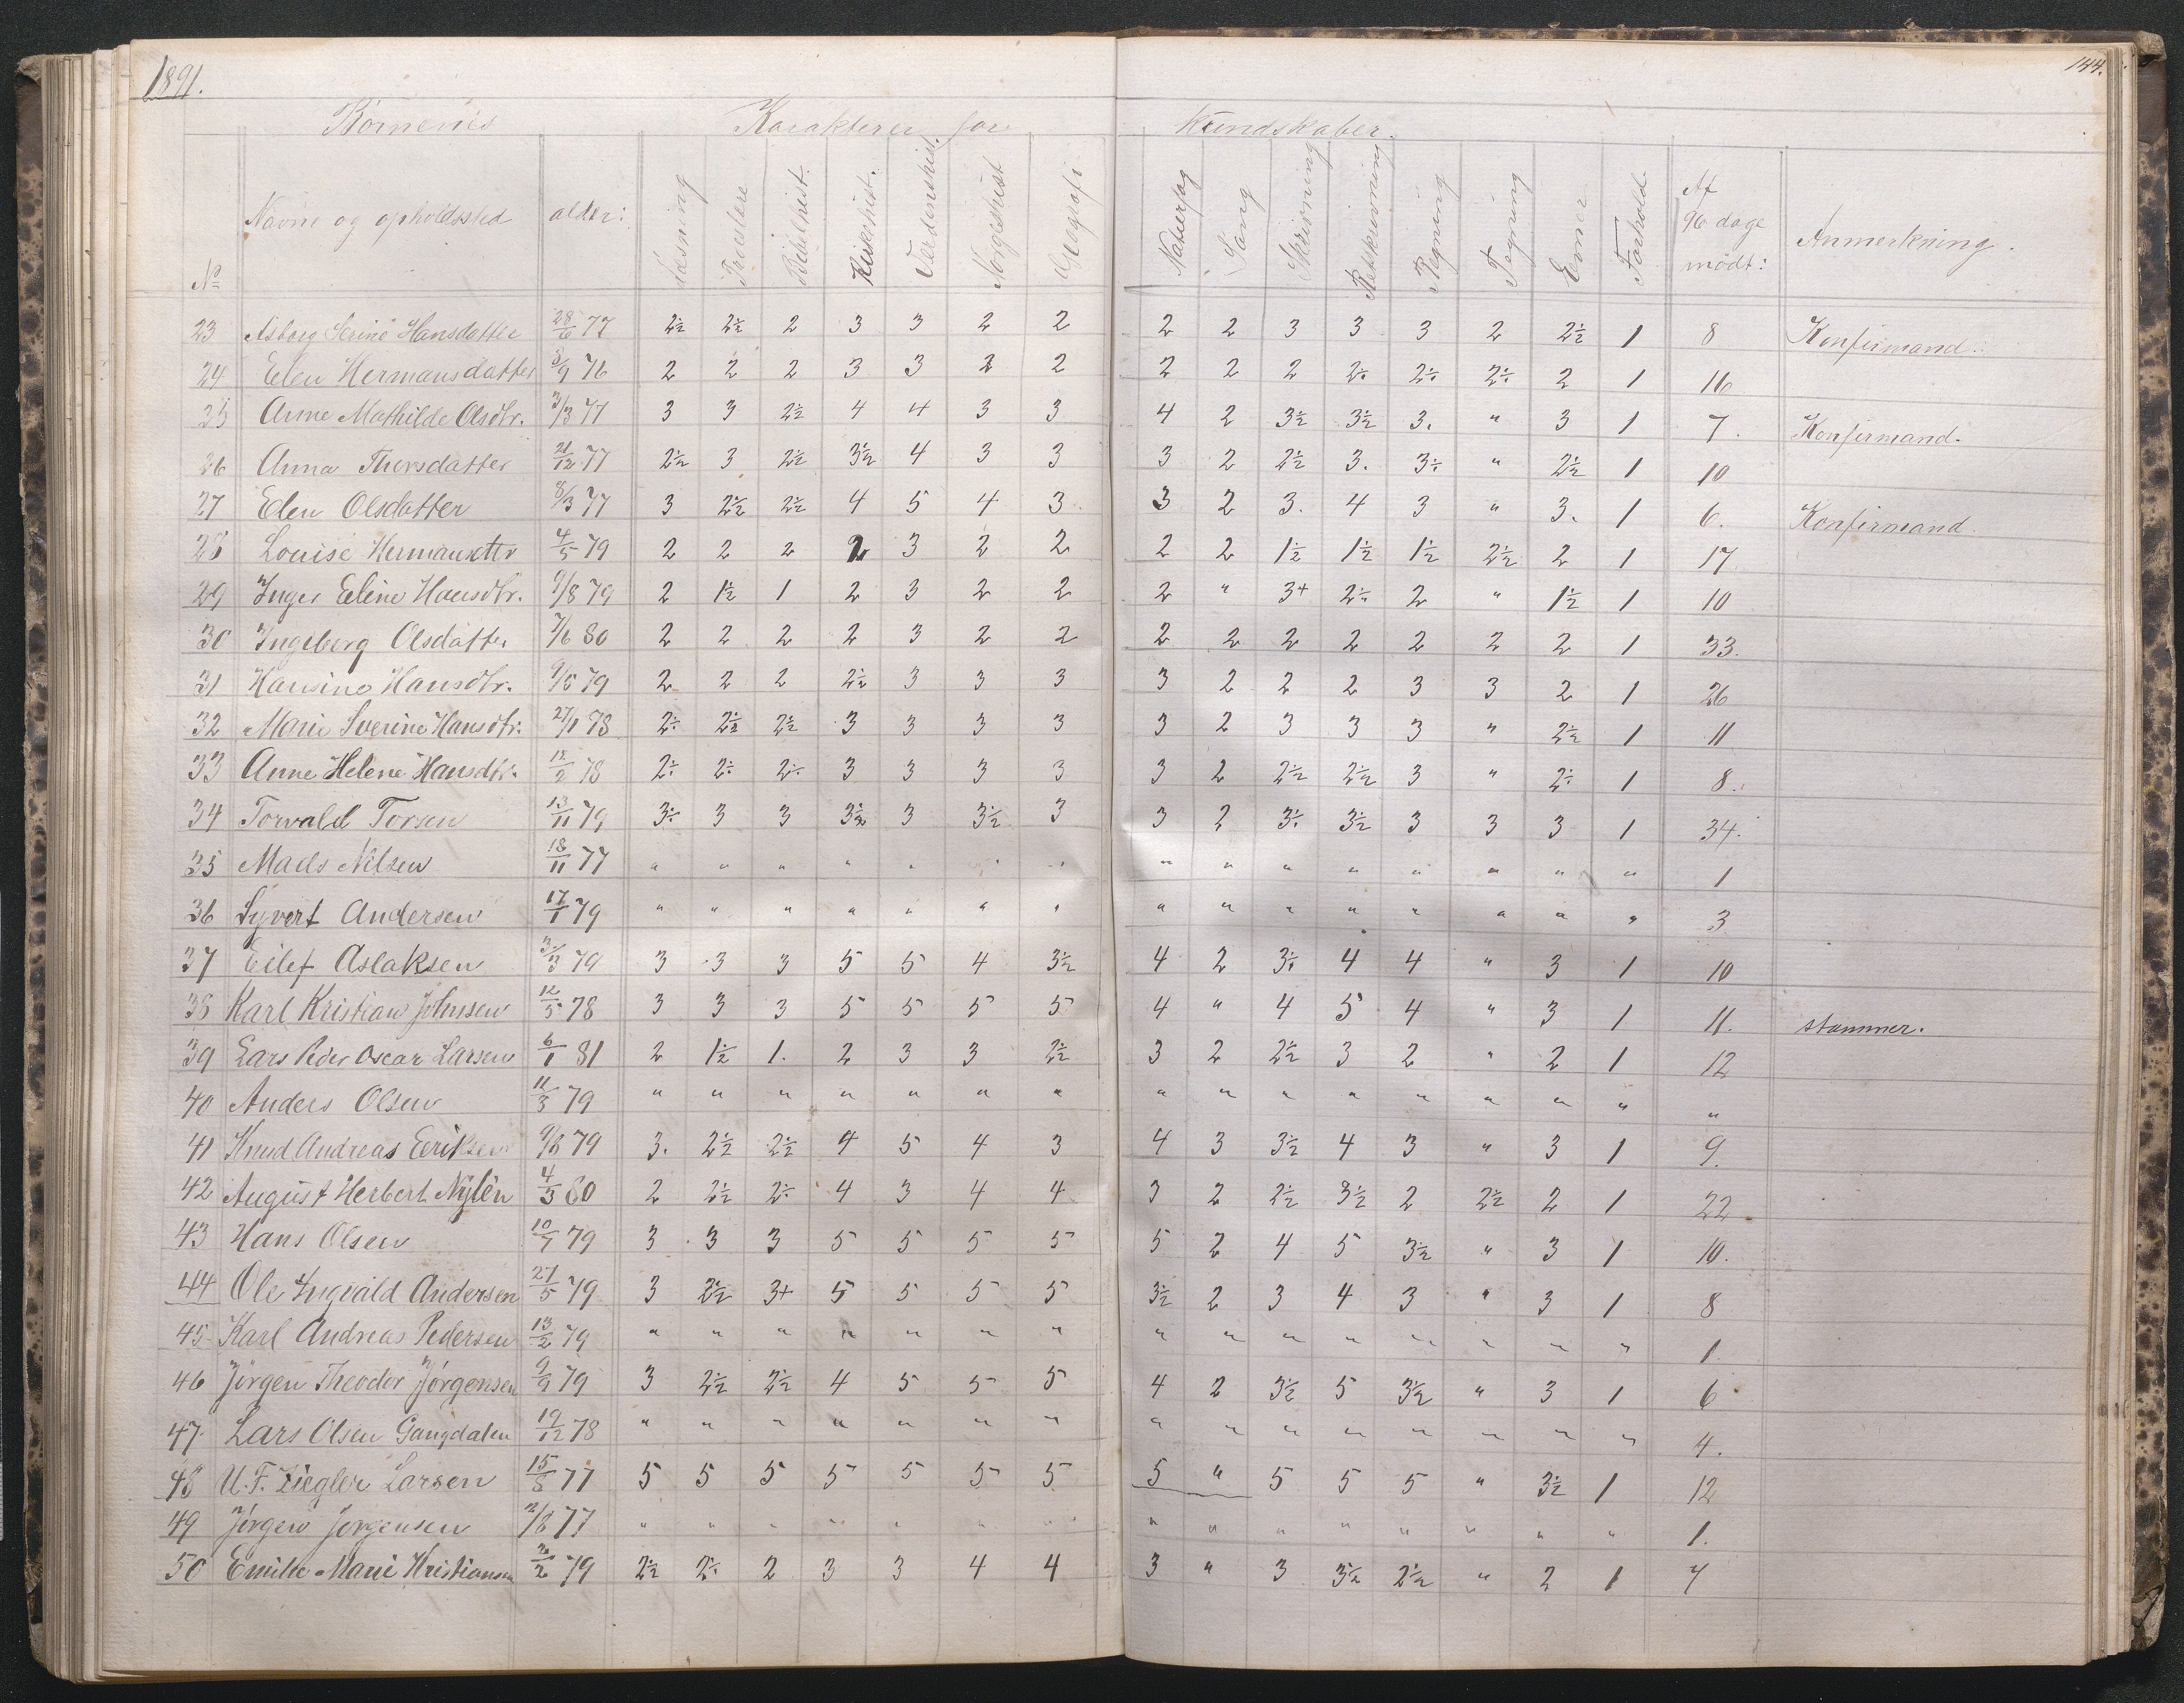 1891.
144.
Børnenes Karakterer for Kundskaber.
No Navne og opholdssted alder: Læsning Troeslære Bibelhist. Kirkehist. Verdenshist. Norgeshist Geografi Naturfag Sang Skrivning Retskrivning Regning Tegning Evner Forhold Af 96 dage mødt: Anmerkning.
23 Asborg Serine Hansdatter 28/6 77 2½ 2½ 2 3 3 2 2 2 2 3 3 3 2 2½ 1 8 Konfirmand.
24 Elen Hermansdatter 8/9 76 2 2 2 3 3 2 2 2 2 2 2÷ 2÷ 2÷ 2 1 16
25 Anne Mathilde Olsdtr. 3/3 77 3 3 2½ 4 4 3 3 4 2 3½ 3½ 3. " 3 1 7. Konfirmand.
26 Anna Thorsdatter 21/12 77 2½ 3 2½ 3½ 4 3 3 3 2 2½ 3. 3÷ " 2½ 1 10
27 Elen Olsdatter 8/3 77 3 2½ 2½ 4 5 4 3. 3 2 3. 4 3 " 3. 1 6. Konfirmand
28 Louise Hermansdtr 4/5 79 2 2 2 2 3 2 2 2 2 1½ 1½ 1½ 2½ 2 1 17
29 Inger Eline Hansdtr. 9/8 79 2 1½ 1 2 3 2 2 2 " 3+ 2÷ 2 " 1½ 1 10
30 Ingeborg Olsdatter 7/6 80 2 2 2 2 3 2 2 2 2 2 2 2 2 2 1 33.
31 Hansine Hansdtr. 9/5 79 2 2 2 2½ 3 3 3 3 2 2 2 3 3 2 1 26
32 Marie Severine Hansdtr. 27/1 78 2÷ 2½ 2½ 3 3 3 3 3 2 3 3 3 " 2½ 1 11
33 Anne Helene Hansdtr. 12/2 78 2÷ 2÷ 2÷ 3 3 3 3 3 2 2½ 2½ 3 " 2÷ 1 8.
34 Torvald Torsen 13/11 79 3÷ 3 3 3½ 3 3½ 3 3 2 3÷ 3½ 3 3 3 1 34.
35 Mads Nilsen 18/11 77 " " " " " " " " " " " " " " " 1
36 Syvert Andersen 17/1 79 " " " " " " " " " " " " " " " 3
37 Eilef Aslaksen 3/3 79 3 3 3 5 5 4 3½ 4 2 3÷ 4 4 " 3 1 10
38 Karl Kristian Johnsen 12/5 78 3 3 3 5 5 5 5 4 " 4 5 4 " 3 1 11. stammer.
39 Lars Peder Oscar Larsen 6/1 81 2 1½ 1. 2 3 3 2½ 3 2 2½ 3 2 " 2 1 12
40 Anders Olsen 11/3 79 " " " " " " " " " " " " " " " "
41 Knud Andreas Eriksen 9/8 79 3. 2½ 2½ 4 5 4 3 4 3 3½ 4 3 " 3 1 9.
42 August Herbert Nylén 4/3 80 2 2½ 2÷ 4 3 4 4 3 2 2½ 3½ 2 2½ 2 1 22
43 Hans Olsen 10/7 79 3 3 3 5 5 5 5 5 2 4 5 3½ " 3 1 10.
44 Ole Ingvald Andersen 27/5 79 3 2½ 3+ 5 5 5 5 3½ 2 3 4 3 " 3 1 8
45 Karl Andreas Pedersen 13/2 79 " " " " " " " " " " " " " " " 1.
46 Jörgen Theodor Jörgensen 9/9 79 3 2½ 2½ 4 5 5 5 4 2 3½ 5 3½ " 3 1 6
47. Lars Olsen Gangdalen 19/12 78 " " " " " " " " " " " " " " " 4.
48 U. F. Ziegler Larsen 15/8 77 5 5 5 5 5 5 5 5 " 5 5 5 " 3½ 1 12
49 Jörgen Jörgensen 2/8 77 " " " " " " " " " " " " " " " 1.
50 Emilie Marie Kristiansen 2/2 79 2½ 2÷ 2 3 3 4 4 3 " 3 3½ 2½ " 2 1 7